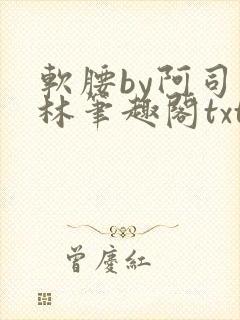 軟腰by阿司
林筆趣閣txt
曾慶紅